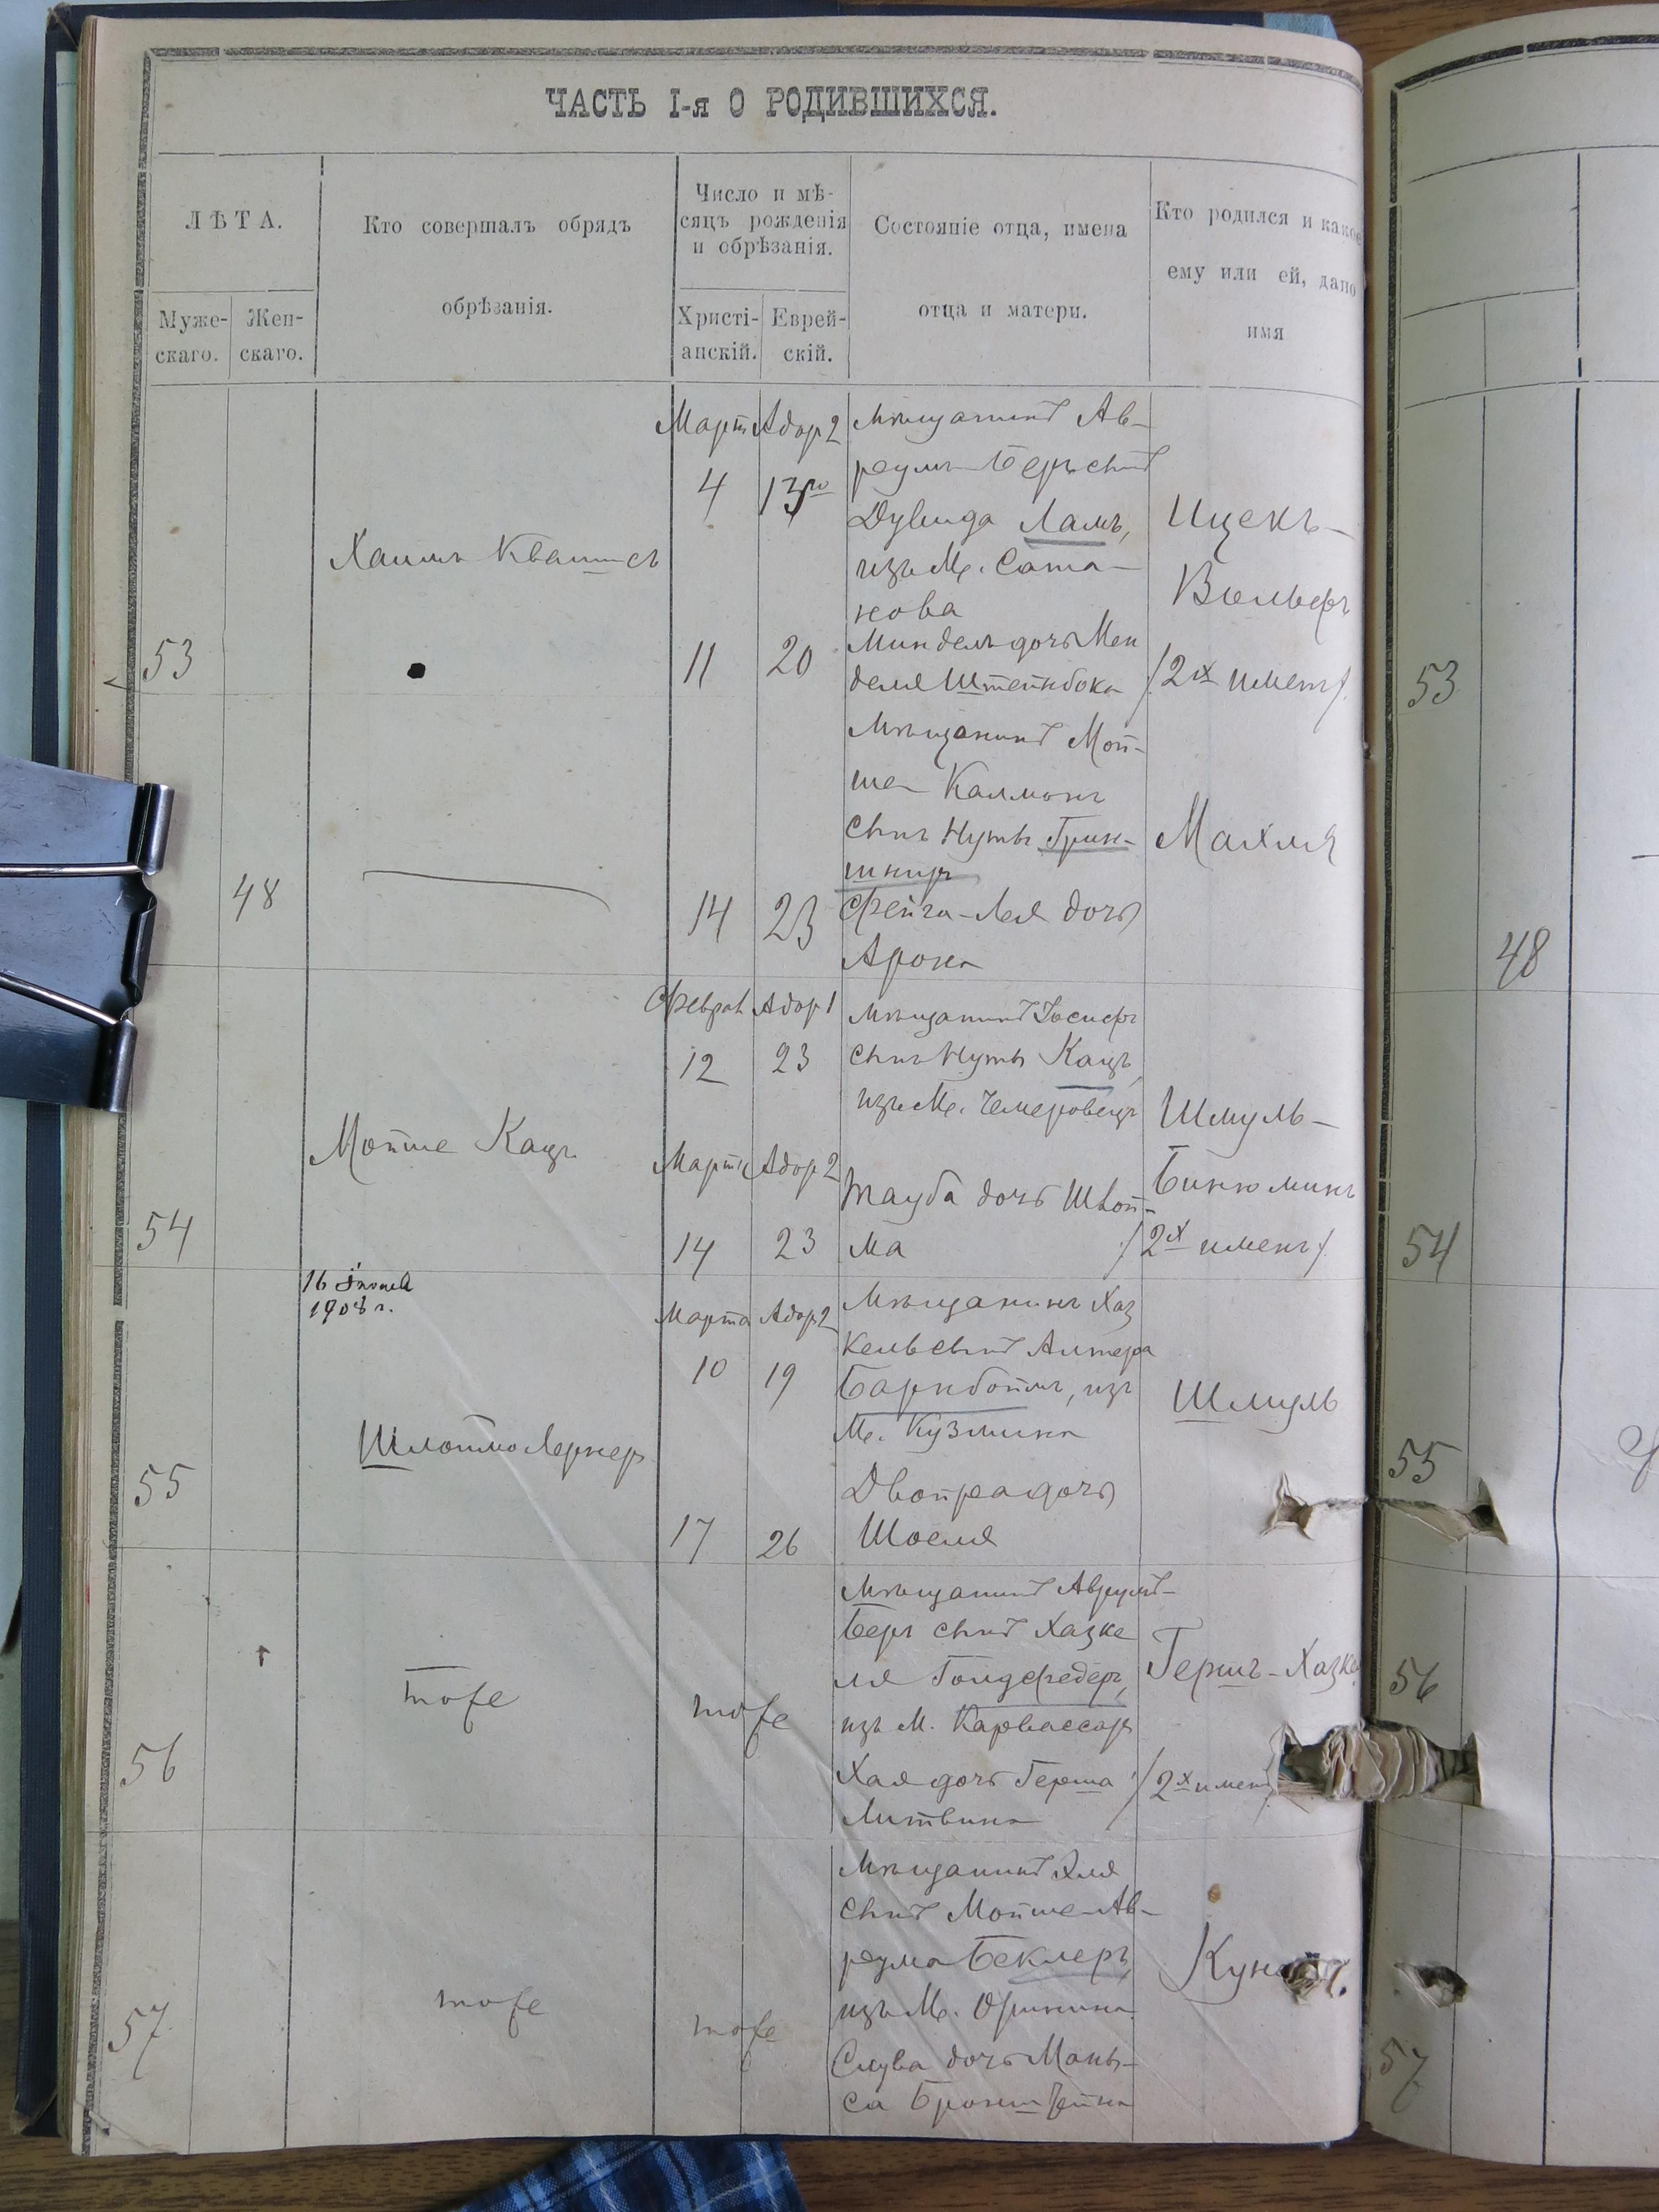 ЧАСТЬ I-я О РОДИВШИХСЯ.
ЛѢТА.
Муже-
скаго.
Жен-
скаго.
Кто совершалъ обрядъ
обрѣзанія.
Число и мѣ-
сяцъ рожденія
и обрѣзанія.
Христі-
анскій.
Еврей-
скій.
Состояніе отца, имена
отца и матери.
Кто родился и какое
ему или ей, дано
имя
53
Хаимъ Квашисъ
Мартъ Адор 2
4 13го
11 20
Мѣщанинъ Ав-
румъ-Беръ сынъ
Дувида Ламъ,
изъ М. Сата-
нова
Миндель дочь Мен
деля Штейнбока
Ицекъ-
Вольфъ
/2х именъ/
53
48
14 23
Мѣщанинъ Мой-
ше Калмонъ
сынъ Нуты Грин-
шпиръ
Фейга-Лея дочь
Арона
Махля
48
54
Мойше Кацъ
Феврал Адор 1
12 23
Марта Адор 2
14 23
Мѣщанинъ Іосифъ
сынъ Нуты Кацъ,
изъ М. Чемеровецъ
Тауба дочь Швой-
ма
Шмуль-
Бинюминъ
/2х именъ/
54
16 Іюля
1908 г.
55
Шлойме Лернеръ
Марта Адор 2
10 19
17 26
Мѣщанинъ Хаз
кель сынъ Алтера
Барнбоймъ, изъ
М. Кузмина
Двойра дочь
Шоеля
Шмуль
55
56
тоже
тоже
Мѣщанинъ Аврумъ-
Беръ сынъ Хазке
ля Голдфедеръ,
изъ М. Карвассаръ
Хая дочь Герша
Литвина
Гершъ-Хазке
/2х имен
56
57
тоже
тоже
Мѣщанинъ Эля
сынъ Мойше-Ав-
рума Беклеръ,
изъ М. Оринина
Слува дочь Мань-
са Бронштейна
57